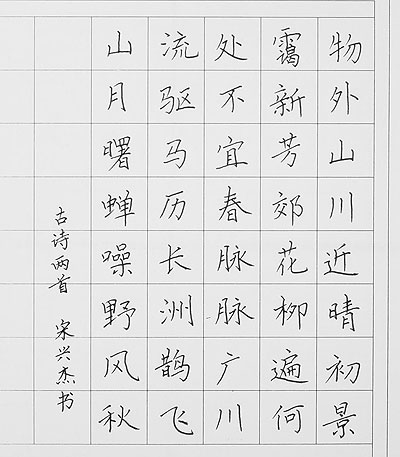 物外山川近晴初景
霭新芳郊花柳遍何
处不宜春脉脉广川
流驱马历长洲鹊飞
山月曙蝉噪野风秋
古诗两首 宋兴杰书